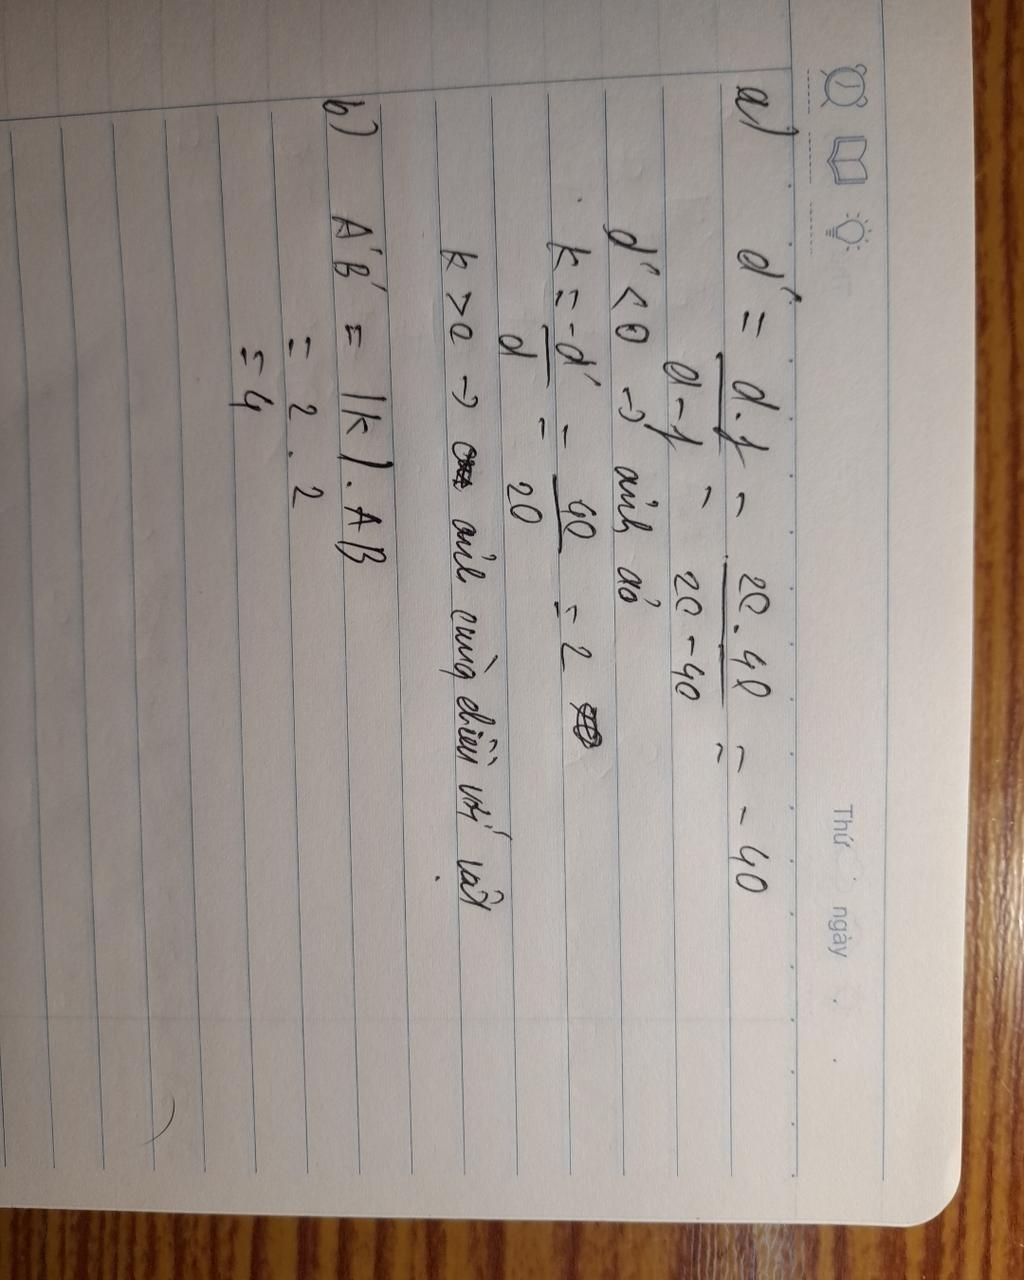 Thứ ngày
a) d' = d.f / d-f = 20.40 / 20-40 = -40
d' < 0 → ảnh ảo
k = -d' / d = 40 / 20 = 2
k > 0 → ảnh cùng chiều với vật
b) A'B' = |k|.AB
= 2.2
= 4